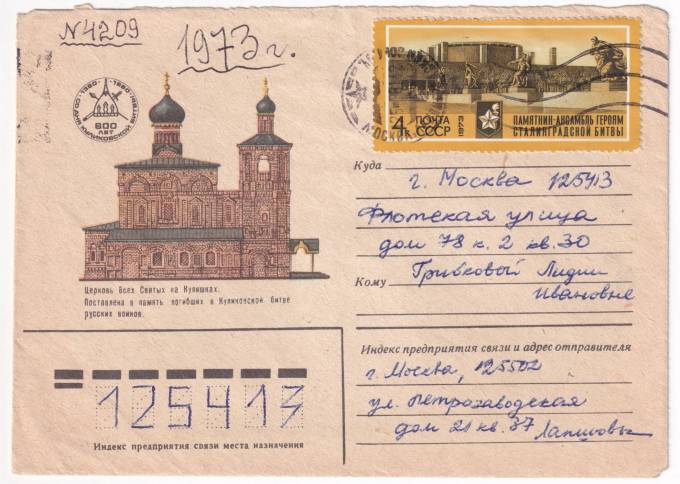 N4209
1973 г.
1380-1980
СОДНЯ КУЛИКОВСКОЙ БИТВЫ
600
ЛЕТ
МОСКВА
4 ПОЧТА
СССР
1973
ПАМЯТНИК-АНСАМБЛЬ ГЕРОЯМ
СТАЛИНГРАДСКОЙ БИТВЫ
Куда г. Москва 125413
Флотская улица
дом 78 к. 2 кв. 30
Кому Грибковый Лидии
Ивановне
Церковь Всех Святых на Кулишках.
Поставлена в память погибших в Куликовской битве
русских воинов.
Индекс предприятия связи и адрес отправителя
г. Москва, 125502
ул. Петрозаводская
дом 21 кв. 37 Лапшовы
125413
Индекс предприятия связи места назначения